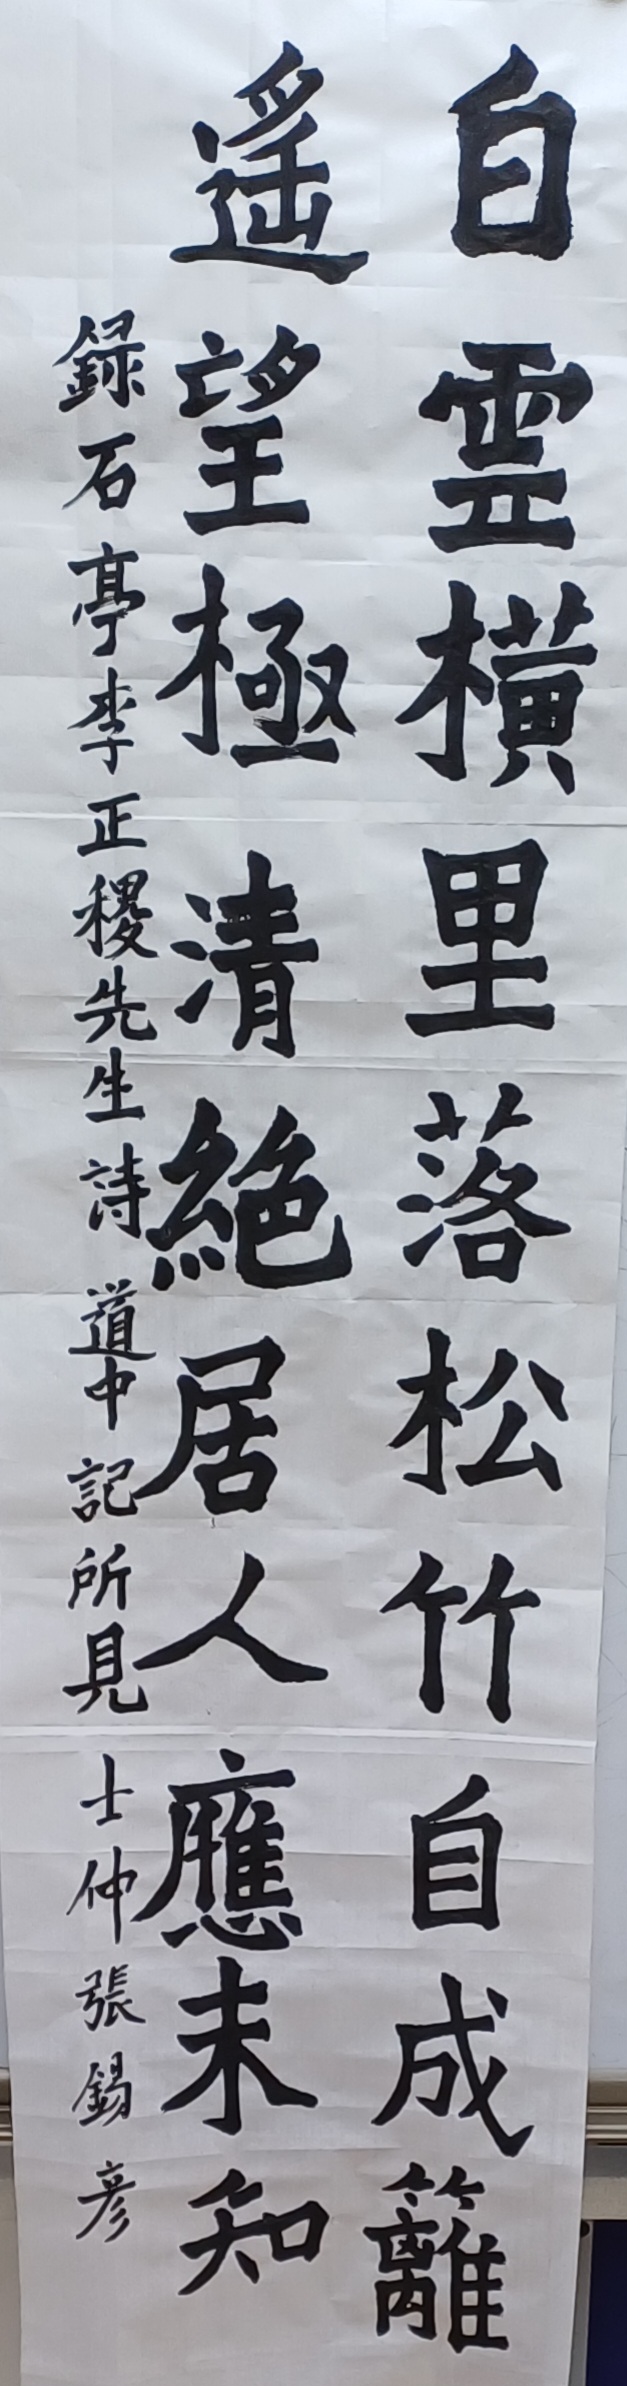 白霊橫里落松竹自成籬
遙望極清絶居人應未知
録石亭李正稷先生詩道中記所見 士仲張錫彦